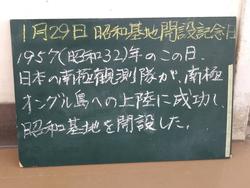 1月29日 昭和基地開設記念日
1957(昭和32)年のこの日、
日本の南極観測隊が、南極
オングル島への上陸に成功し、
昭和基地を開設した。